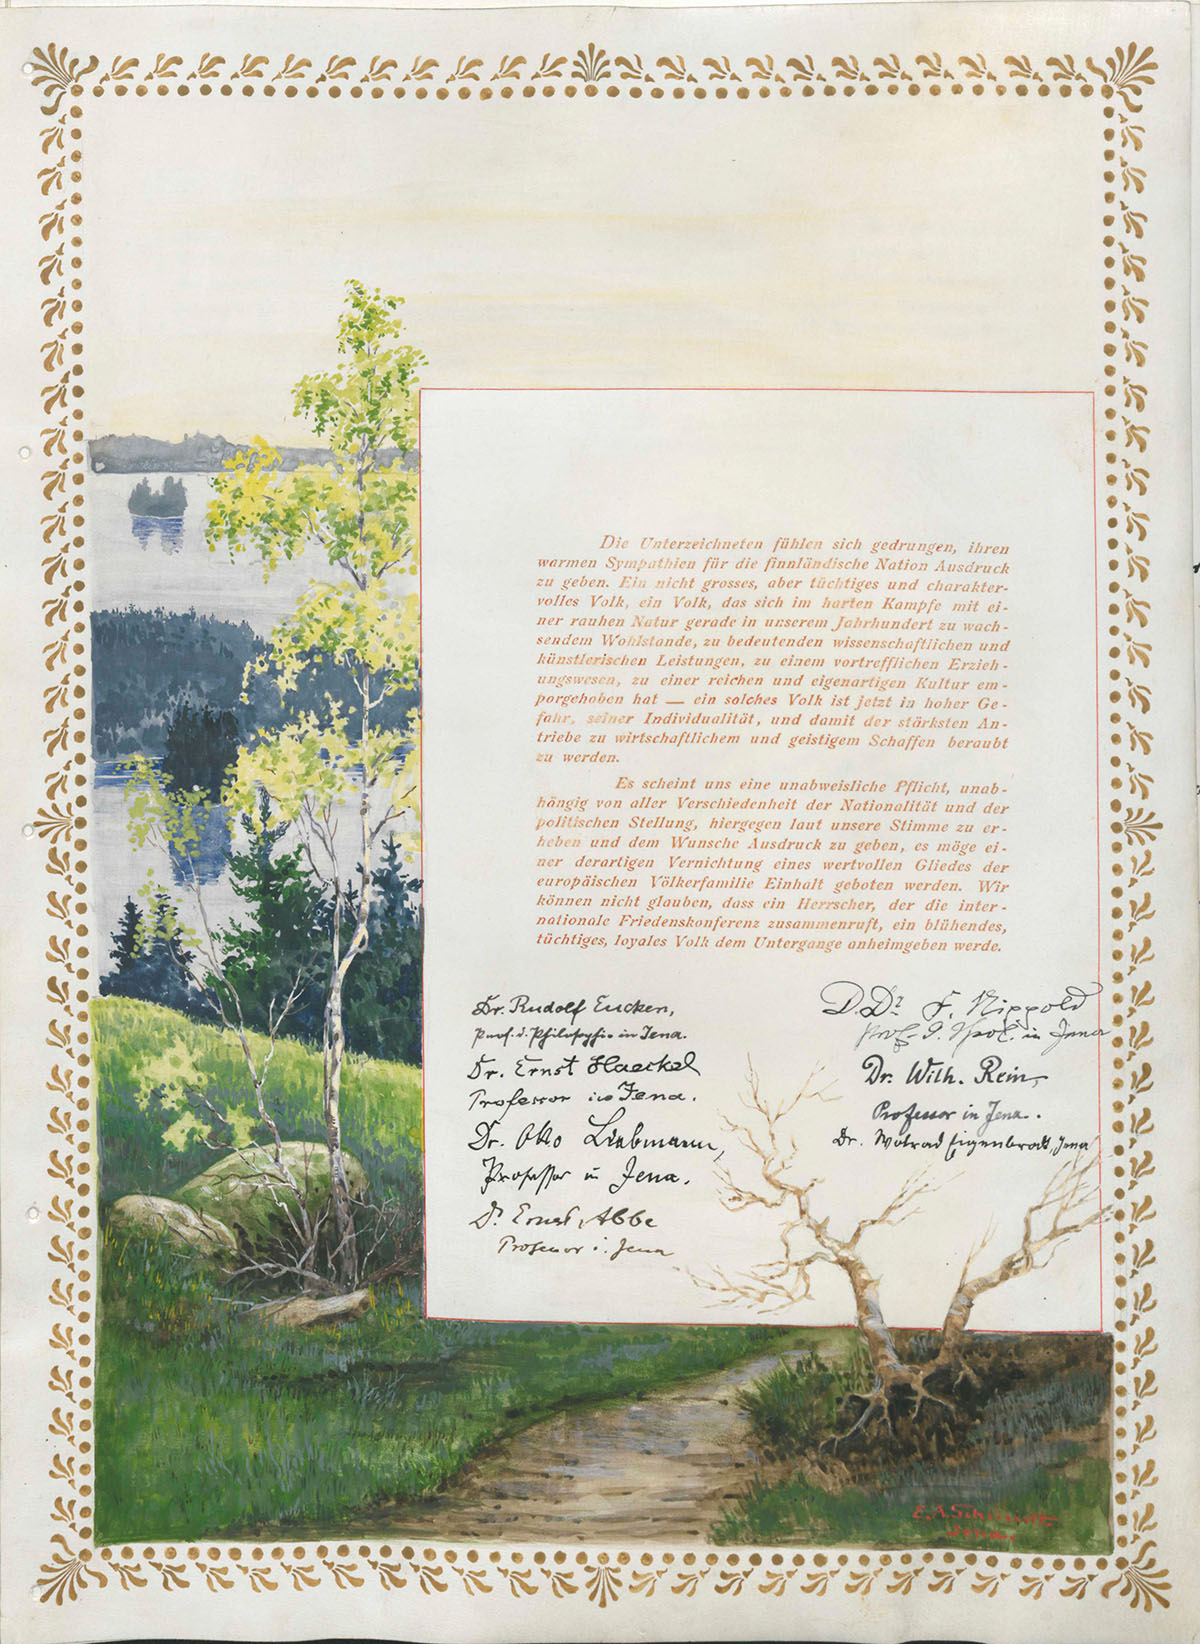 Die Unterzeichneten fühlen sich gedrungen, ihren
warmen Sympathien für die finnländische Nation Ausdruck
zu geben. Ein nicht grosses, aber tüchtiges und charakter-
volles Volk, ein Volk, das sich im harten Kampfe mit ei-
ner rauhen Natur gerade in unserem Jahrhundert zu wach-
sendem Wohlstande, zu bedeutenden wissenschaftlichen und
künstlerischen Leistungen, zu einem vortrefflichen Erzieh-
ungswesen, zu einer reichen und eigenartigen Kultur em-
porgehoben hat — ein solches Volk ist jetzt in hoher Ge-
fahr, seiner Individualität, und damit der stärksten An-
triebe zu wirtschaftlichem und geistigem Schaffen beraubt
zu werden.
Es scheint uns eine unabweisliche Pflicht, unab-
hängig von aller Verschiedenheit der Nationalität und der
politischen Stellung, hiergegen laut unsere Stimme zu er-
heben und dem Wunsche Ausdruck zu geben, es möge ei-
ner derartigen Vernichtung eines wertvollen Gliedes der
europäischen Völkerfamilie Einhalt geboten werden. Wir
können nicht glauben, dass ein Herrscher, der die inter-
nationale Friedenskonferenz zusammenruft, ein blühendes,
tüchtiges, loyales Volk dem Untergange anheimgeben werde.
Dr. Rudolf Eucken,
Prof. d. Philosophie in Jena.
Dr. Ernst Haeckel
Professor in Jena.
Dr. Otto Liebmann,
Professor in Jena.
Dr. Ernst Abbe
Professor i. Jena
D. Dr. F. Nippold
Prof. in Jena
Dr. Wilh. Rein,
Professor in Jena.
Dr. Wolrad Eigenbrodt, Jena
E. A. Schmidt
Jena.